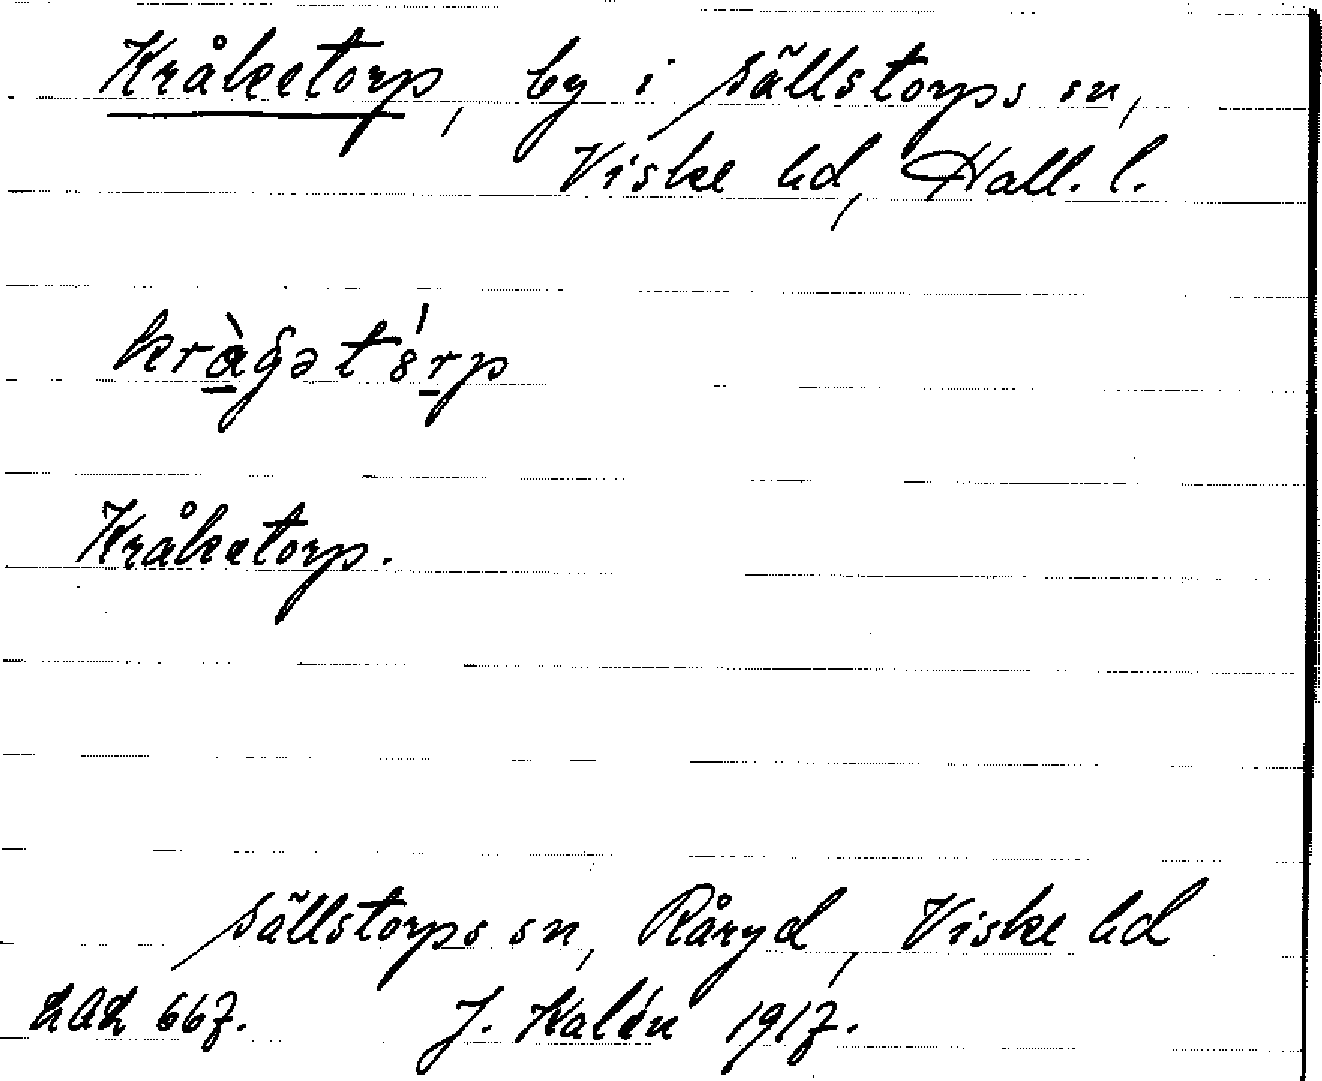 Kråketorp, by i Sällstorps sn,
Viske hd, Hall. l.
kràgət'8rp
Kråketorp.
Sällstorps sn, Råryd, Viske hd
667. J. Kalén 1917.